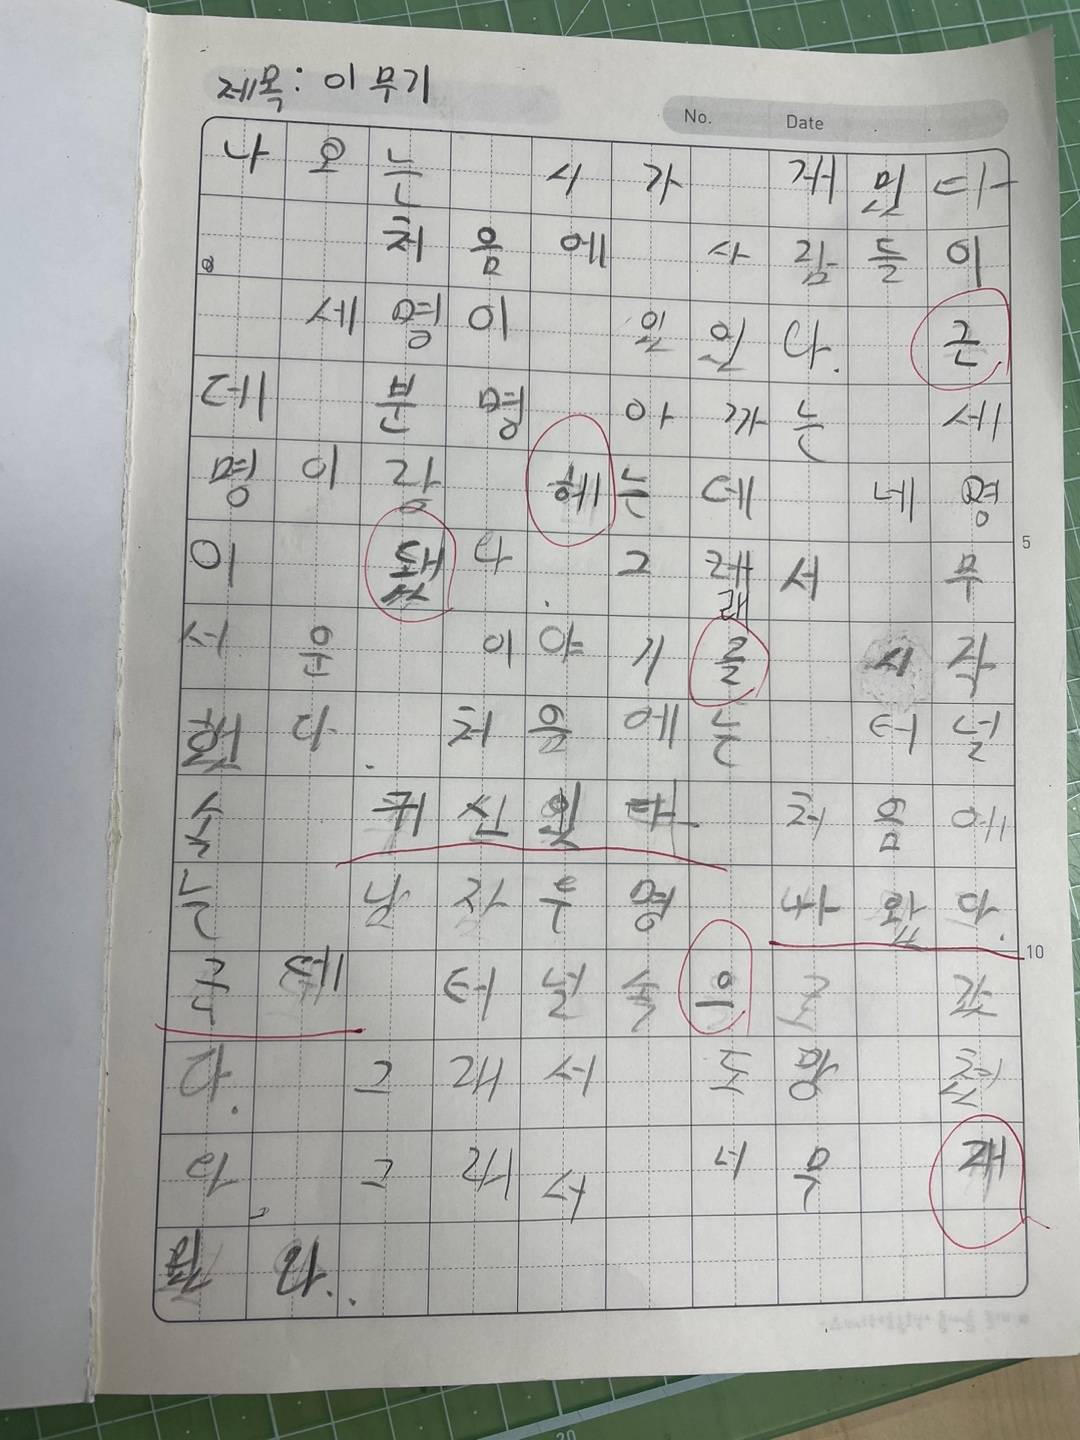 제목: 이무기
No. Date
나 오 는 시 가 재 민 다
처음에 사람들이
세 명이 있었다. 근
데 분명 아까는 세
명이랑 헤는데 네 명
이 됐다. 그래서 무
래
5
서운 이야기를 시작
했다. 처음에는 터널
속 귀신 었다 처음에
는 남자 두 명 나 왔 다.
10
근데 터널 속으로 갔
다. 그래서 도망쳤
다. 그래서 너무 재
다..